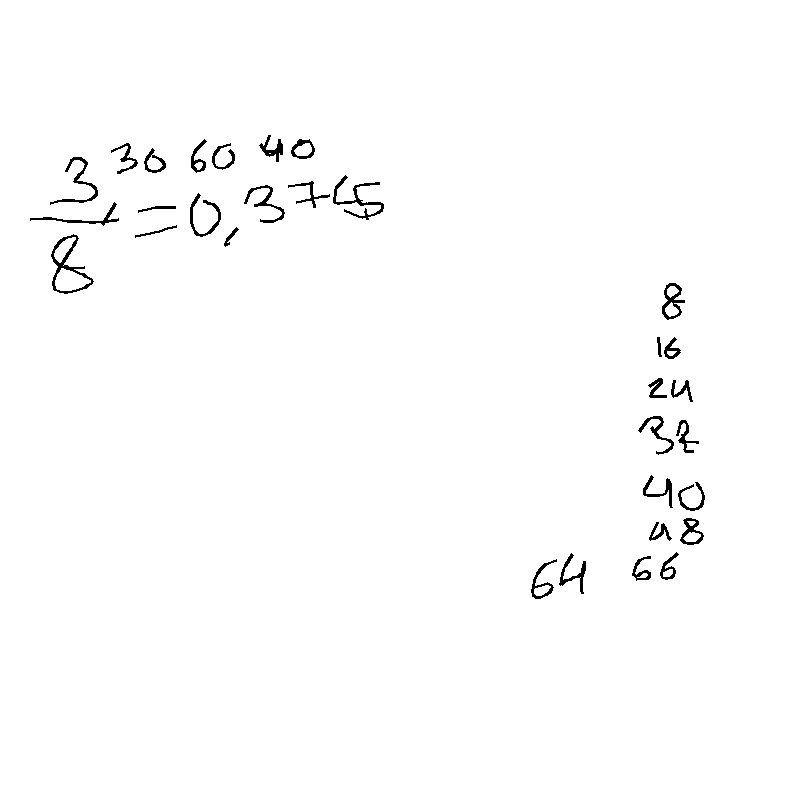 30 60 40
3/8 = 0,375
8
16
24
32
40
48
64 56